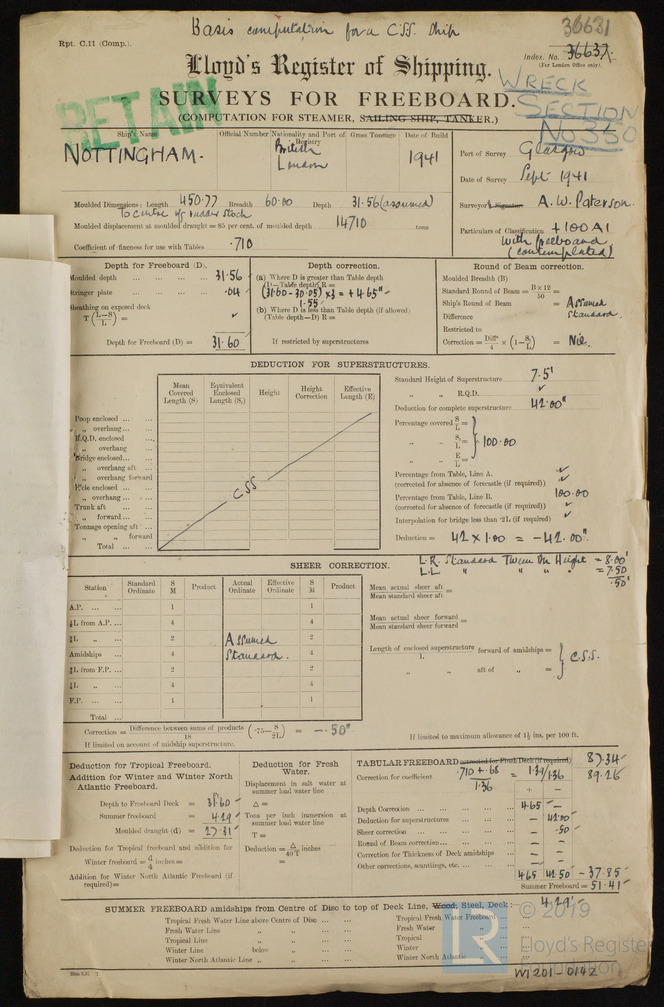 Basis computation for a C.S.S. ship
36631
Rpt. C.11 (Comp.).
Index. No. 36637
(For London Office only).
Lloyd's Register of Shipping.
RETAIN
WRECK
SECTION
No 350
SURVEYS FOR FREEBOARD.
(COMPUTATION FOR STEAMER, SAILING SHIP, TANKER.)
Ship's Name
Official Number
Nationality and Port of Registry
Gross Tonnage
Date of Build
NOTTINGHAM.
British
London
1941
Port of Survey Glasgow
Date of Survey Sept 1941
Surveyor's Signature A. W. Paterson.
Particulars of Classification +100A1
with freeboard
(contemplated)
Moulded Dimensions: Length 450.77 Breadth 60.00 Depth 31.56 (assumed)
To centre of rudder stock
Moulded displacement at moulded draught = 85 per cent. of moulded depth 14710 tons
Coefficient of fineness for use with Tables .710
Depth for Freeboard (D).
Moulded depth ... 31.56
Stringer plate ... .04
Sheathing on exposed deck
T (L-S/L) =
Depth for Freeboard (D) = 31.60
Depth correction.
(a) Where D is greater than Table depth
(D-Table depth) R =
(31.60 - 30.05) × 3 = + 4.65"
1.55
(b) Where D is less than Table depth (if allowed)
(Table depth-D) R =
If restricted by superstructures
Round of Beam correction.
Moulded Breadth (B)
Standard Round of Beam = B×12/50 =
Ship's Round of Beam =
Assumed
Standard.
Difference
Restricted to
Correction = Diffce/4 × (1-S₁/L) = Nil.
DEDUCTION FOR SUPERSTRUCTURES.
Mean Covered Length (S)
Equivalent Enclosed Length (S₁)
Height
Height Correction
Effective Length (E)
Poop enclosed ...
" overhang ...
R.Q.D. enclosed ...
" overhang
Bridge enclosed...
" overhang aft ...
" overhang forward
F'cle enclosed ...
" overhang ...
Trunk aft ...
" forward ...
Tonnage opening aft ...
" " forward
Total ...
CSS
Standard Height of Superstructure 7.5'
" " R.Q.D.
Deduction for complete superstructure 42.00"
Percentage covered S/L =
" " S₁/L = 100.00
" " E/L =
Percentage from Table, Line A.
(corrected for absence of forecastle (if required))
Percentage from Table, Line B. 100.00
(corrected for absence of forecastle (if required))
Interpolation for bridge less than ·2L (if required)
Deduction = 42 × 1.00 = -42.00"
SHEER CORRECTION.
L.R. Standard Tween Dk Height = 8.00'
L.L. " " " = 7.50
.50'
Station
Standard Ordinate
S M
Product
Actual Ordinate
Effective Ordinate
S M
Product
A.P. ... 1 1
⅙L from A.P. ... 4 4
⅓L " ... 2 2
Amidships ... 4 4
⅓L from F.P. ... 2 2
⅙L " ... 4 4
F.P. ... 1 1
Total ...
Assumed
Standard.
Mean actual sheer aft
Mean standard sheer aft =
Mean actual sheer forward
Mean standard sheer forward =
Length of enclosed superstructure forward of amidships =
L
" " aft of " =
C.S.S.
Correction = Difference between sums of products/18 (·75 - S/2L) = -.50"
If limited on account of midship superstructure.
If limited to maximum allowance of 1½ ins. per 100 ft.
Deduction for Tropical Freeboard.
Addition for Winter and Winter North
Atlantic Freeboard.
Ft.
Depth to Freeboard Deck = 31.60
Summer freeboard = 4.29
Moulded draught (d) = 27.31
Deduction for Tropical freeboard and addition for
Winter freeboard = d/4 inches =
Addition for Winter North Atlantic Freeboard (if
required) =
Deduction for Fresh
Water.
Displacement in salt water at
summer load water line
Δ =
Tons per inch immersion at
summer load water line
T =
Deduction = Δ/40 T inches
=
TABULAR FREEBOARD corrected for Flush Deck (if required) 87.34
Correction for coefficient .710 + .68/1.36 = 1.39/1.36 89.26
+ -
Depth Correction ... 4.65 -
Deduction for superstructures ... - 42.00
Sheer correction ... - .50
Round of Beam correction ... - -
Correction for Thickness of Deck amidships - -
Other corrections, scantlings, etc. ... - -
4.65 42.50 - 37.85
Summer Freeboard = 51.41
4.29'
SUMMER FREEBOARD amidships from Centre of Disc to top of Deck Line, Wood, Steel, Deck:
Tropical Fresh Water Line above Centre of Disc ...
Fresh Water Line " "
Tropical Line " "
Winter Line below "
Winter North Atlantic Line " "
Tropical Fresh Water Freeboard
Fresh Water
Tropical
Winter
Winter North Atlantic
LR
© 2019
Lloyd's Register
Foundation
W1201-0142